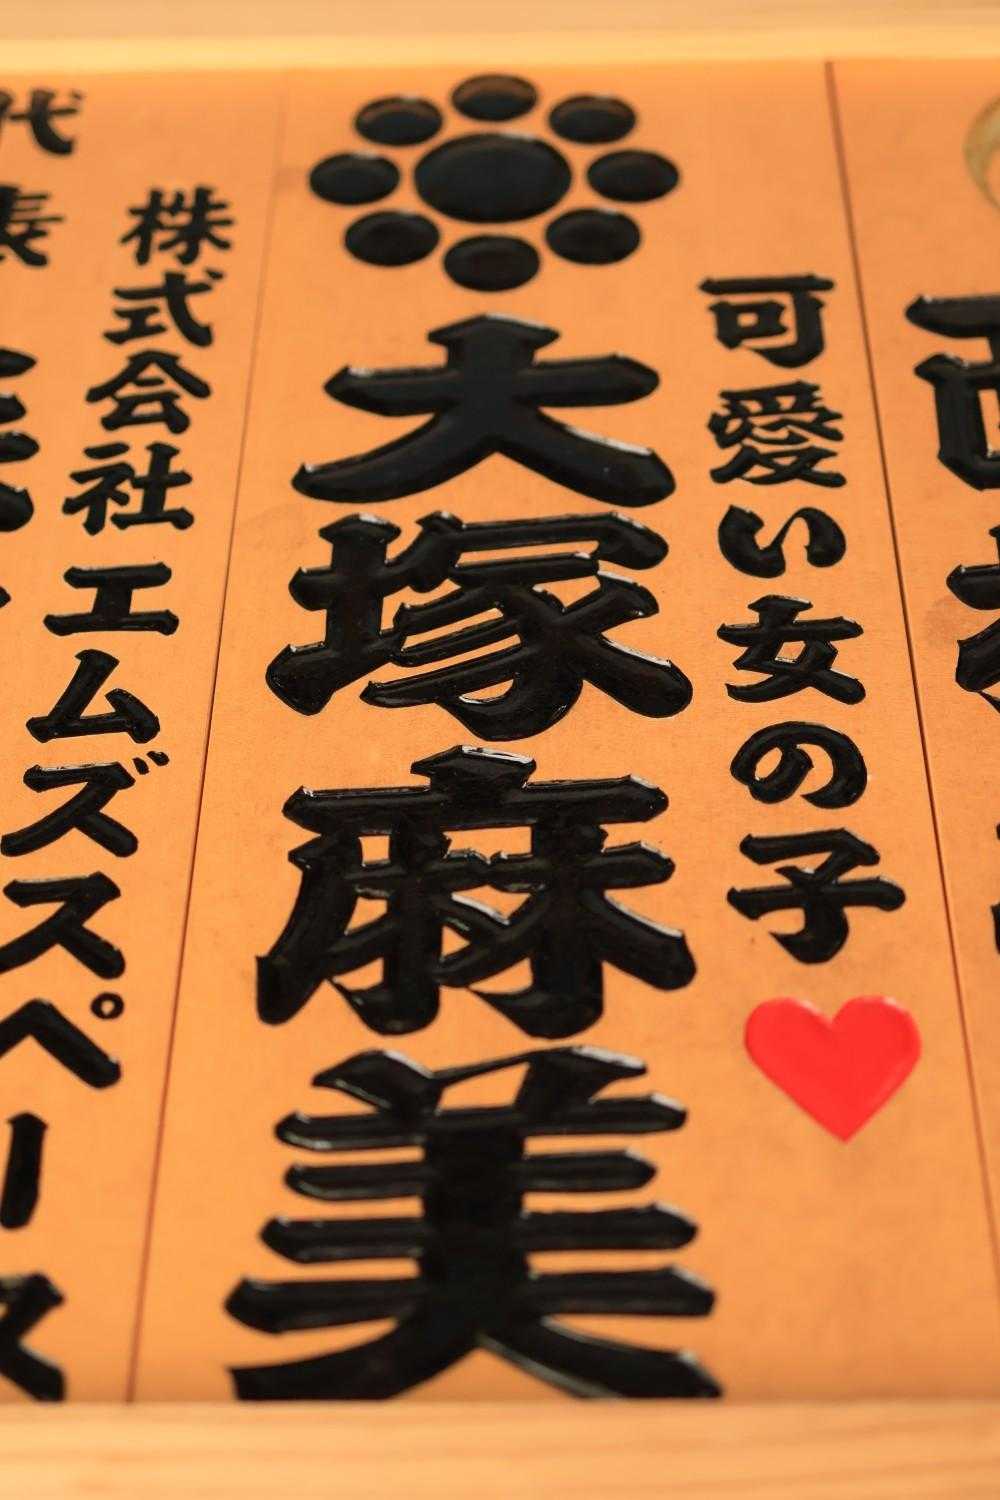 可愛い女の子
大塚麻美
株式会社エムズスペース
代表